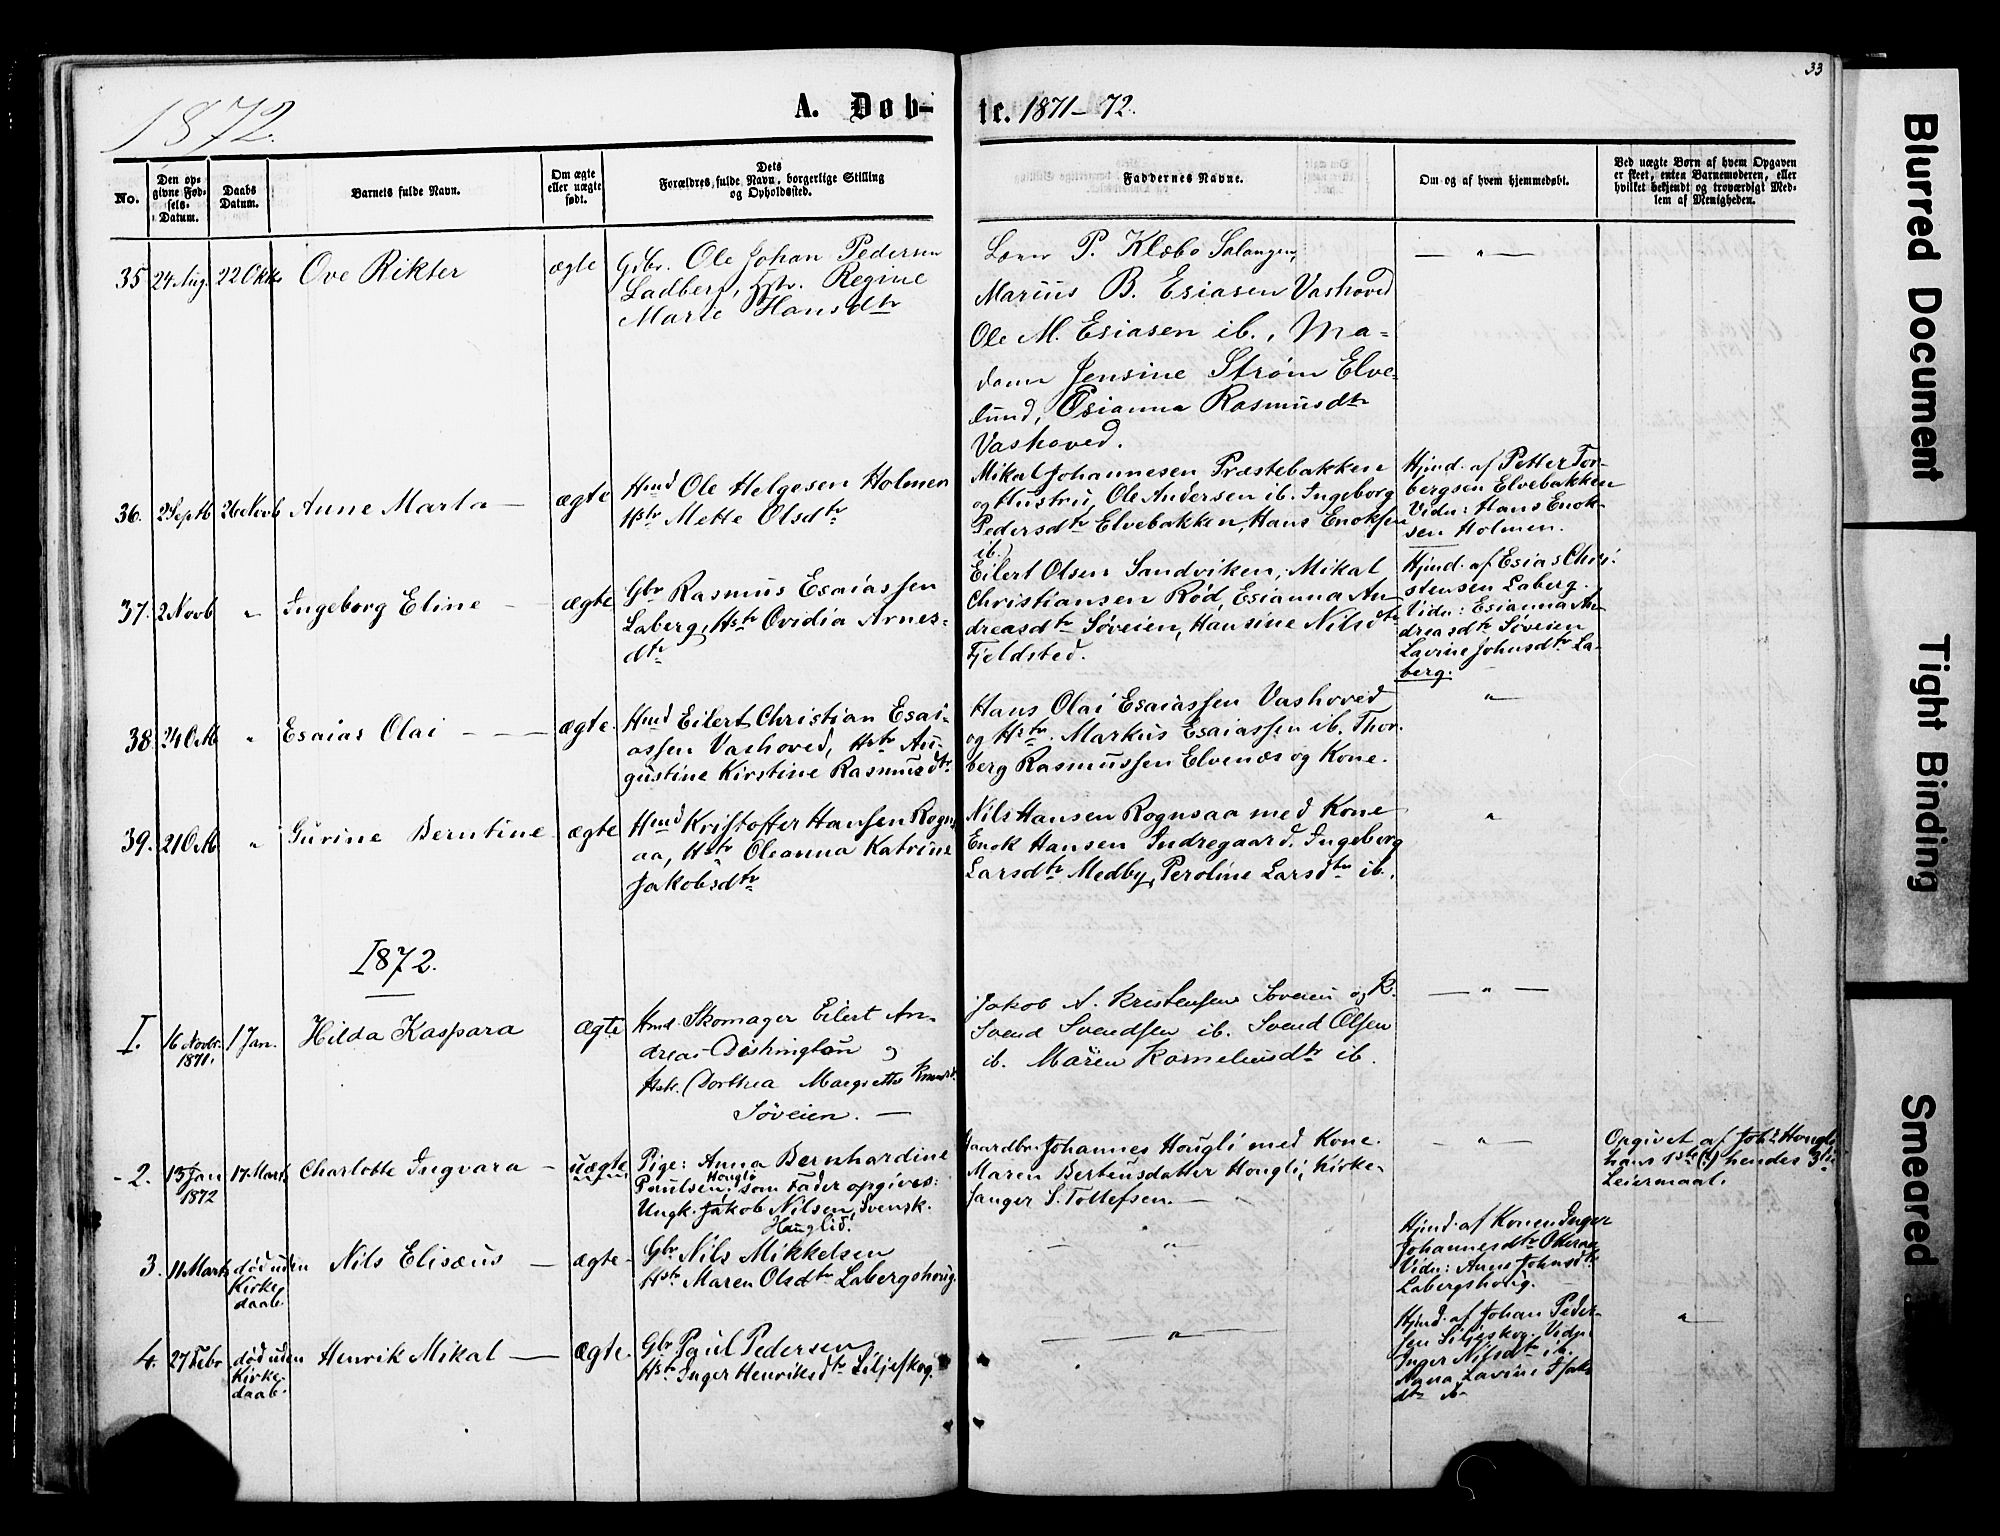 33
1872.
A. Døb-
te. 1871-72.
No.
Den op-
givne Fød-
sels-
Datum.
Daabs
Datum.
Barnets fulde Navn.
Om ægte
eller uægte
født.
Dets
Forældres fulde Navn, borgerlige Stilling
og Opholdssted.
Faddernes Navne.
Om og af hvem hjemmedøbt.
Ved uægte Børn af hvem Opgaven
er skeet, enten Barnemoderen, eller
hvilket bekjendt og troværdigt Med-
lem af Menigheden.
35 24 Aug. 22 Oktbr Ove Rikter ægte
Gdbr. Ole Johan Pedersen
Ladberg, Hstr. Regine
Marie Hansdtr
P. Klæbo Salangen,
Marius B. Esiasen Vashoved
Ole M. Esiasen ib., Ma-
dame Jensine Strøm Elve-
lund, Esianna Rasmusdtr
Vashoved.
— " —
36. 2 Septb 26 Novb Anne Marta — ægte
Hmd Ole Helgesen Holmen
Hstr Mette Olsdtr
Mikal Johannesen Præstebakken
og Hustru, Ole Andersen ib. Ingeborg
Pedersdtr Elvebakken, Hans Enoksen
ib.
Hjmd. af Petter Tor-
bergsen Elvebakken
Vidn: Hans Enok-
sen Holmen.
37. 2 Novb " Ingeborg Eline — ægte
Gbr Rasmus Esaiassen
Laberg, Hstr Ovidia Arnes-
dtr
Eilert Olsen Sandviken, Mikal
Christiansen Rød, Esianna An-
dreasdtr Søveien, Hansine Nilsdtr
Fjeldsted.
Hjmd. af Esias Chri-
stensen Laberg.
Vidn: Esianna An-
dreasdtr Søveien
Lavine Johnsdtr La-
berg.
38. 24 Oktb " Esaias Olai — — ægte.
Hmd Eilert Christian Esai-
assen Vashoved, Hstr Au-
gustine Kirstine Rasmusdtr
Hans Olai Esaiassen Vashoved
og Hstr. Markus Esaiassen ib. Thor-
berg Rasmussen Elvenæs og Kone.
"
39. 21 Oktb " Gurine Berntine ægte
Hmd Kristoffer Hansen Rogns-
aa, Hstr Oleanna Katrine
Jakobsdtr
Nils Hansen Rognsaa med Kone
Enok Hansen Indregaard. Ingeborg
Larsdtr Medby, Peroline Larsdtr ib.
"
1872.
I. 16 Novbr. 1871. 1 Jan. Hilda Kaspara ægte
Hmd. Skomager Eilert An-
dreas Dishington og
Hstr. Dorthea Margrethe
Søveien. —
Jakob A. Kristensen Søveien og K.
Svend Svendsen ib. Svend Olsen
ib. Maren Korneliusdtr ib.
— " —
2. 13 Jan 1872 17 Marts Charlotte Ingvara — uægte
Pige: Anna Bernhardine
Paulsen, Hougli som Fader opgives:
Ungk. Jakob Nilsen, Svensk.
Hauglid.
Gaardbr. Johannes Hougli med Kone.
Maren Berteusdatter Hougli, Kirke-
sanger S. Tollefsen. —
— " —
Opgivet af Johs Hougli
hans 1ste (?) hendes 3die
Leiermaal.
3. 11 Marts død uden
Kirke-
daab. Nils Elisæus — ægte-
Gbr Nils Mikkelsen
Hstr Maren Olsdtr Labergshoug.
— " —
Hjmd. af Konen Inger
Johannesdtr
Vidn: Anne Johnsdtr
Labergshoug.
4. 27 Febr død uden
Kirke-
daab. Henrik Mikal — ægte.
Gbr Paul Pedersen
Hstr Inger Henriksdtr Liljeskog.
— " —
Hjmd. af Johan Peder-
sen Liljeskog. Vidn:
Inger Nilsdtr ib.
Anna Lavine Isak-
dtr ib
"
Blurred Document
Tight Binding
Smeared